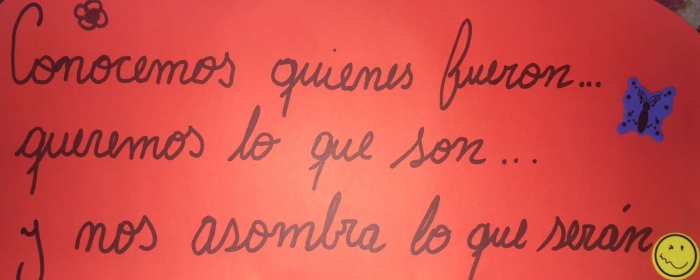 Conocemos quienes fueron...
queremos lo que son...
y nos asombra lo que serán